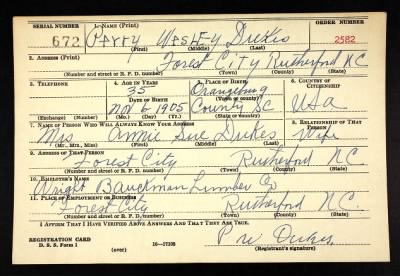 SERIAL NUMBER 1. NAME (Print) ORDER NUMBER
672 Perry Wesley Dukes 2582
(First) (Middle) (Last)
2. ADDRESS (Print)
Forest City Rutherford N.C.
(Number and street or R. F. D. number) (Town) (County) (State)
3. TELEPHONE 4. AGE IN YEARS 5. PLACE OF BIRTH 6. COUNTRY OF CITIZENSHIP
35 Orangeburg
DATE OF BIRTH (Town or county)
Nov 6 1905 County SC USA
(Exchange) (Number) (Mo.) (Day) (Yr.) (State or country)
7. NAME OF PERSON WHO WILL ALWAYS KNOW YOUR ADDRESS 8. RELATIONSHIP OF THAT PERSON
Mrs Annie Sue Dukes Wife
(Mr., Mrs., Miss) (First) (Middle) (Last)
9. ADDRESS OF THAT PERSON
Forest City Rutherford N.C.
(Number and street or R. F. D. number) (Town) (County) (State)
10. EMPLOYER'S NAME
Lumber Co
11. PLACE OF EMPLOYMENT OR BUSINESS
Forest City Rutherford N.C.
(Number and street or R. F. D. number) (Town) (County) (State)
I AFFIRM THAT I HAVE VERIFIED ABOVE ANSWERS AND THAT THEY ARE TRUE.
REGISTRATION CARD P W Dukes
D. S. S. Form 1 (over) 16—17105 (Registrant's signature)